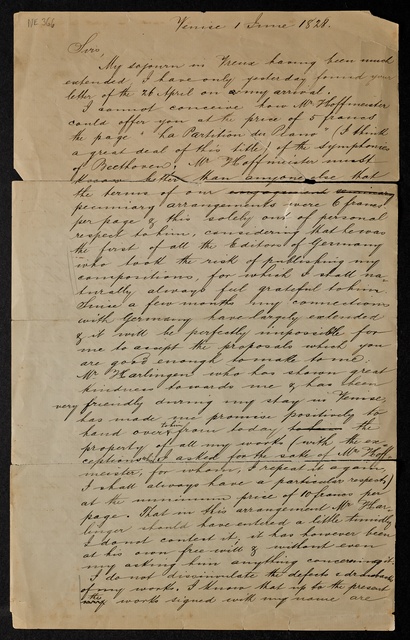 NE 366
Venise 1 June 1828.
Sirs,
My sojourn in having been much
extended I have only yesterday found your
letter of the 26 April on my arrival.
I cannot conceive how Mr Hoffmeister
could offer you at the price of 5 francs
the page "La Partition de Piano" (I think
a great deal of this title) of the symphonies
of Beethoven. Mr Hoffmeister must
know better than anyone else that
the terms of our
pecuniary arrangements were 6 francs
per page & this solely out of personal
respect to him, considering that he was
the first of all the Editors of Germany
who took the risk of publishing my
compositions, for which I shall na-
turally always feel grateful to him.
Since a few months my connections
with Germany have largely extended
& it will be perfectly impossible for
me to accept the proposals which you
are good enough to make to me.
Mr who has shown great
kindness towards me & has been
very friendly during my stay in Venise,
has made me promise positively to
hand over to him from today the
property of all my works (with the ex-
ceptions I asked for the sake of Mr Hoff-
meister, for whom, I repeat it again,
I shall always have a particular respect)
at the minimum price of 10 francs per
page. That in this arrangement Mr
should have entered a little timidly
I do not contest it, it has however been
at his own free will & without even
my asking him anything concerning it.
I do not dissimulate the defects & drawbacks
of my works. I know that up to the present
the works signed with my name are